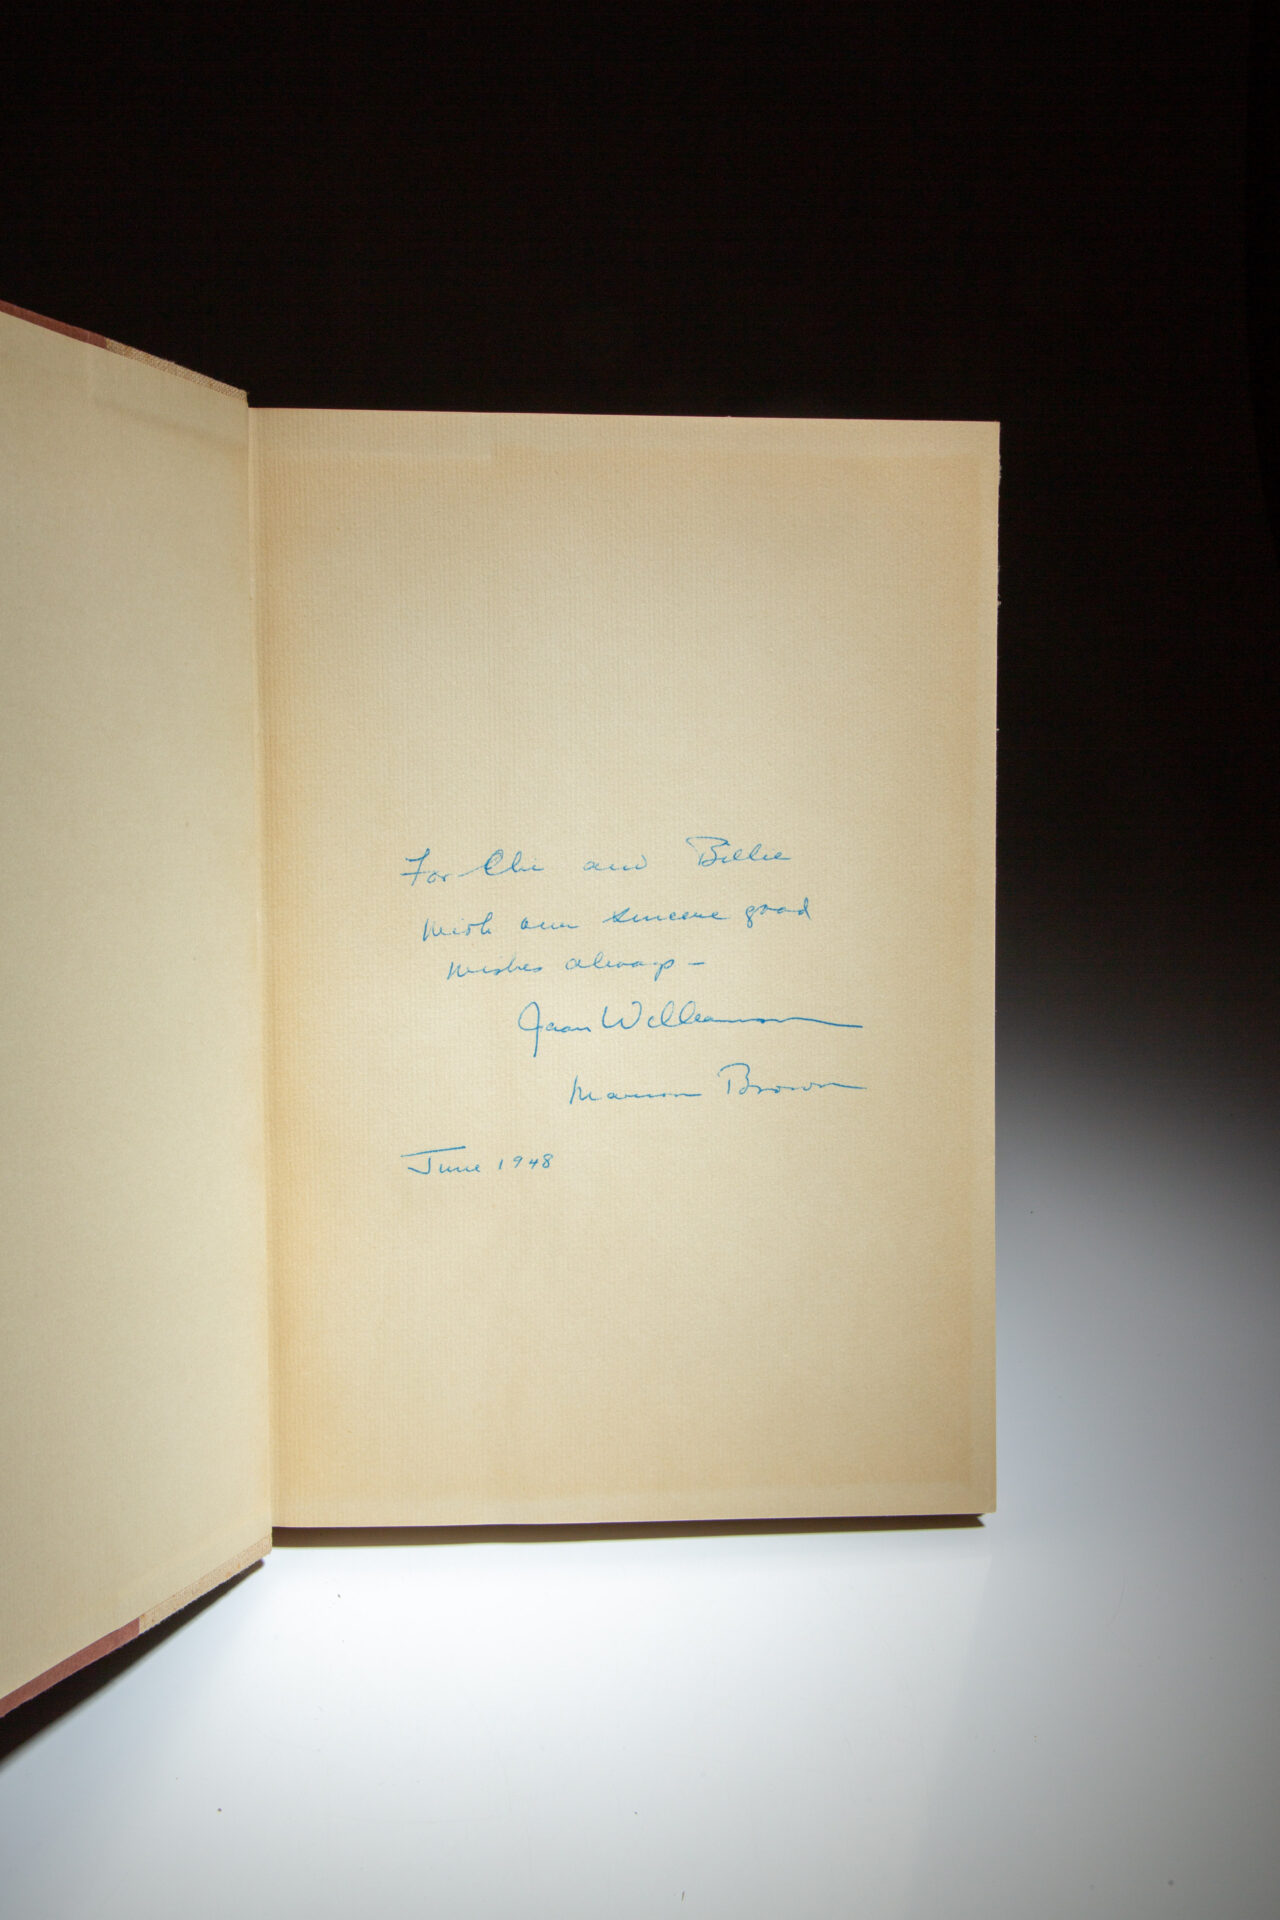 For Chi and Billie
with our sincere good
wishes always –
Joan Williamson
Marion Brown
June 1948